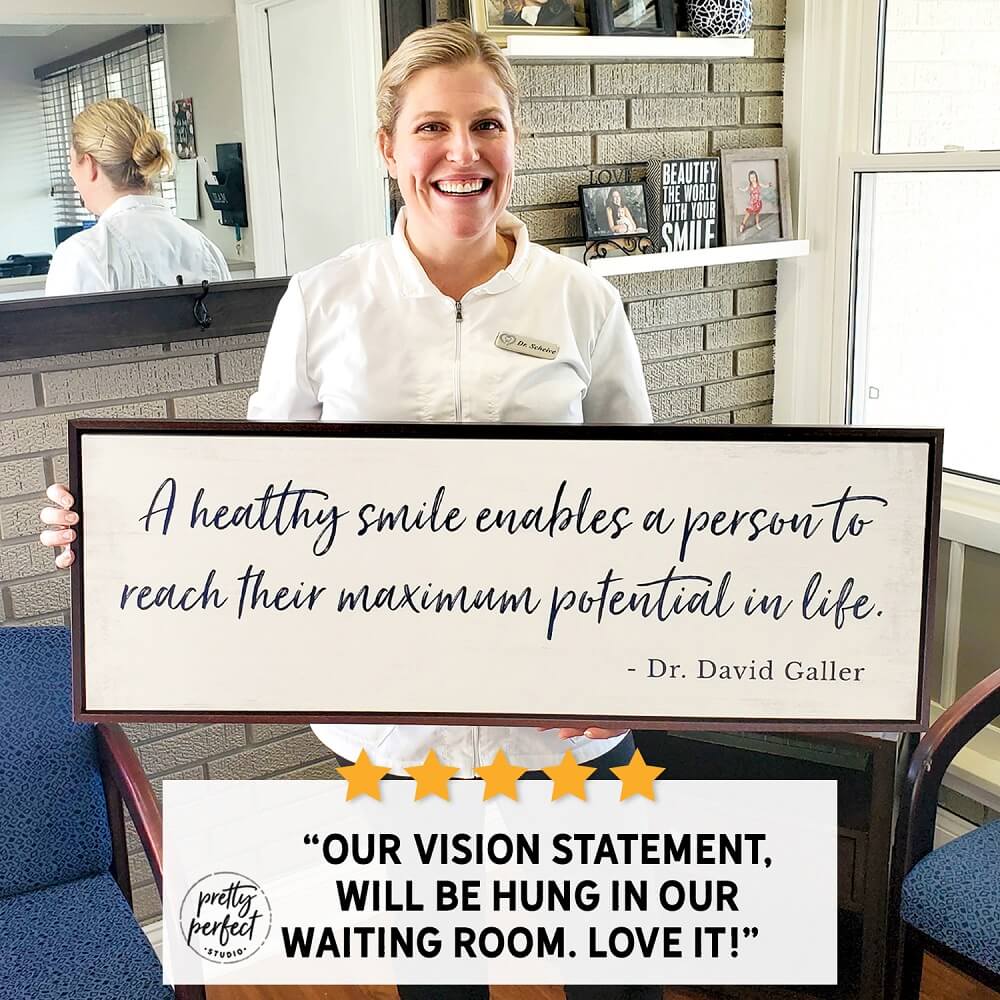 LOVE
BEAUTIFY
THE WORLD
WITH YOUR
SMILE
Dr. Scheive
A healthy smile enables a person to
reach their maximum potential in life.
- Dr. David Galler
“OUR VISION STATEMENT,
WILL BE HUNG IN OUR
WAITING ROOM. LOVE IT!”
pretty
perfect
•STUDIO•